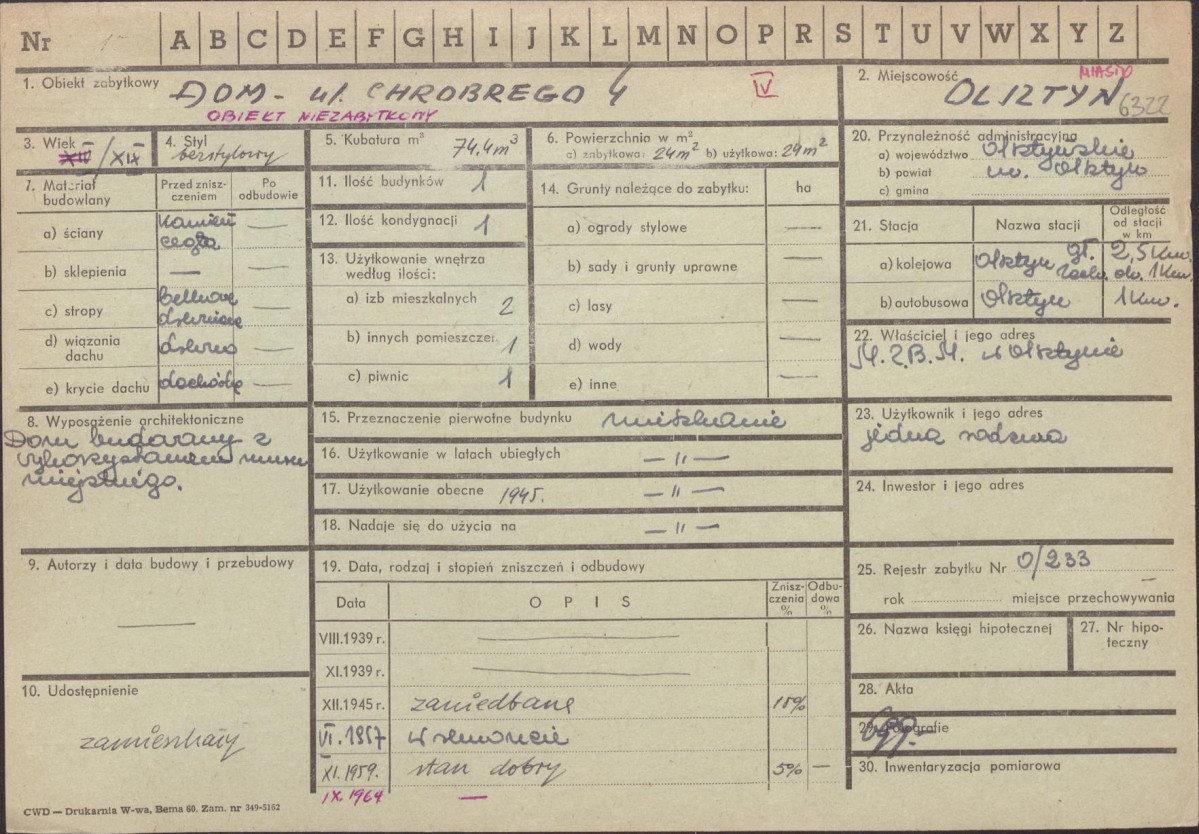 Nr A B C D E F G H I J K L M N O P R S T U V W X Y Z
1. Obiekt zabytkowy DOM - ul. CHROBREGO 4
V
OBIEKT NIEZABYTKOWY
2. Miejscowość MIASTO
OLSZTYN 6322
3. Wiek XIV/XIX
4. Styl
bezstylowy
5. Kubatura m³ 74,4 m³
6. Powierzchnia w m²
a) zabytkowa: 24 m² b) użytkowa: 29 m²
7. Materiał budowlany
Przed znisz-
czeniem
Po
odbudowie
a) ściany kamień —
cegła
b) sklepienia — —
c) stropy belkowe —
drewniane
d) wiązania
dachu drewno —
e) krycie dachu dachówka —
8. Wyposażenie architektoniczne
Dom budowany z
wykorzystaniem muru
miejskiego.
9. Autorzy i data budowy i przebudowy
—
10. Udostępnienie
zamieszkały
11. Ilość budynków 1
12. Ilość kondygnacji 1
13. Użytkowanie wnętrza
według ilości:
a) izb mieszkalnych 2
b) innych pomieszczeń 1
c) piwnic 1
14. Grunty należące do zabytku: ha
a) ogrody stylowe —
b) sady i grunty uprawne —
c) lasy —
d) wody —
e) inne —
15. Przeznaczenie pierwotne budynku mieszkanie
16. Użytkowanie w latach ubiegłych — " —
17. Użytkowanie obecne 1945. — " —
18. Nadaje się do użycia na — " —
19. Data, rodzaj i stopień zniszczeń i odbudowy
Data OPIS Znisz-
czenia
% Odbu-
dowa
%
VIII.1939 r. —
XI.1939 r. —
XII.1945 r. zaniedbane 15%
VI.1957 w remoncie
XI.1959. stan dobry 5% —
IX.1964 —
20. Przynależność administracyjna
a) województwo olsztyńskie
b) powiat m. Olsztyn
c) gmina
21. Stacja Nazwa stacji Odległość
od stacji
w km
a) kolejowa Olsztyn gł. 2,5 Km.
zach. ok. 1 Km.
b) autobusowa Olsztyn 1 Km.
22. Właściciel i jego adres
M.Z.B.M. w Olsztynie
23. Użytkownik i jego adres
jedna rodzina
24. Inwestor i jego adres
25. Rejestr zabytku Nr 0/233
rok miejsce przechowywania
26. Nazwa księgi hipotecznej
27. Nr hipo-
teczny
28. Akta
29. Fotografie
30. Inwentaryzacja pomiarowa
CWD — Drukarnia W-wa, Bema 60, Zam. nr 349-5162